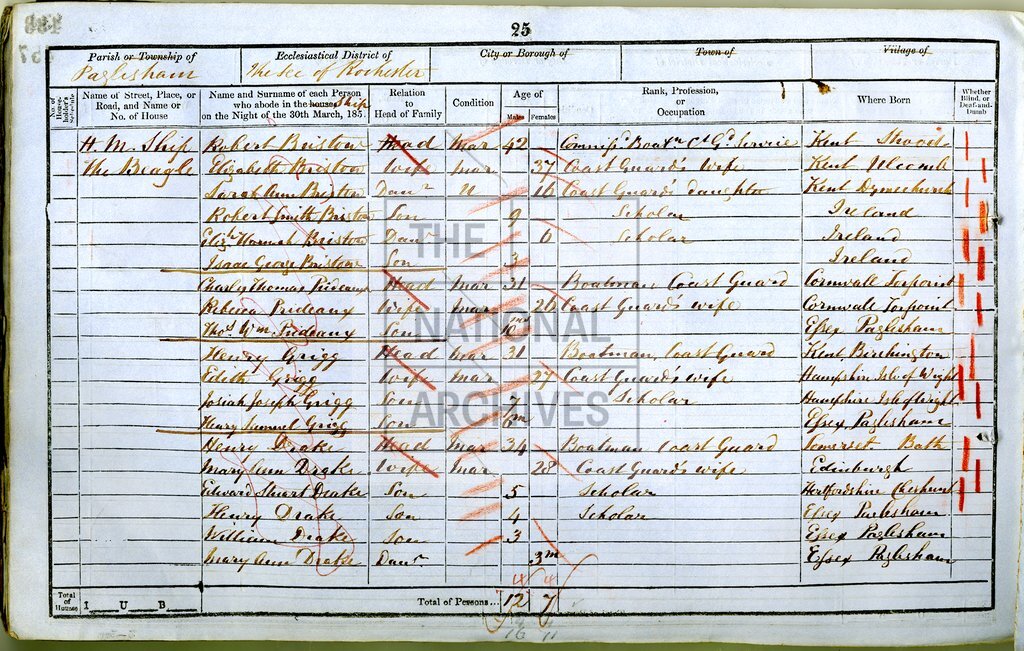 25
Parish or Township of
Paglesham
Ecclesiastical District of
The See of Rochester
City or Borough of
Town of
Village of
No. of House-holder's Schedule
Name of Street, Place, or Road, and Name or No. of House
Name and Surname of each Person who abode in the house Ship on the Night of the 30th March, 1851
Relation to Head of Family
Condition
Age of
Males Females
Rank, Profession, or Occupation
Where Born
Whether Blind, or Deaf-and-Dumb
H. M. Ship Robert Bristow Head Mar 42 Kent
The Beagle Elizabeth Bristow Wife Mar 37 Coast Guard's Wife Kent Ulcomb
Sarah Ann Bristow Daur U 16 Coast Guard's daughter Kent Dymchurch
Robert Smith Bristow Son 9 Scholar Ireland
Elizh Hannah Bristow Daur 6 Scholar Ireland
Isaac George Bristow Son 3 Ireland
Charles Thomas Prideaux Head Mar 31 Boatman, Coast Guard Cornwall Torpoint
Rebecca Prideaux Wife Mar 26 Coast Guard's Wife Cornwall Torpoint
Thos Wm Prideaux Son 10 mo Essex Paglesham
Henry Grigg Head Mar 31 Boatman, Coast Guard Kent, Birchington
Edith Grigg Wife Mar 27 Coast Guard's wife Hampshire Isle of Wight
Josiah Joseph Grigg Son 7 Scholar Hampshire Isle of Wight
Henry Samuel Grigg Son 6m Essex Paglesham
Henry Drake Head Mar 34 Boatman Coast Guard Somerset Bath
Mary Ann Drake Wife Mar 28 Coast Guard's Wife Edinburgh
Edward Stuart Drake Son 5 Scholar Hertfordshire Cheshunt
Henry Drake Son 4 Scholar Essex Paglesham
William Drake Son 3 Essex Paglesham
Mary Ann Drake Daur 3m Essex Paglesham
Total of Houses I U B
Total of Persons... 12 7
16 11
THE NATIONAL ARCHIVES